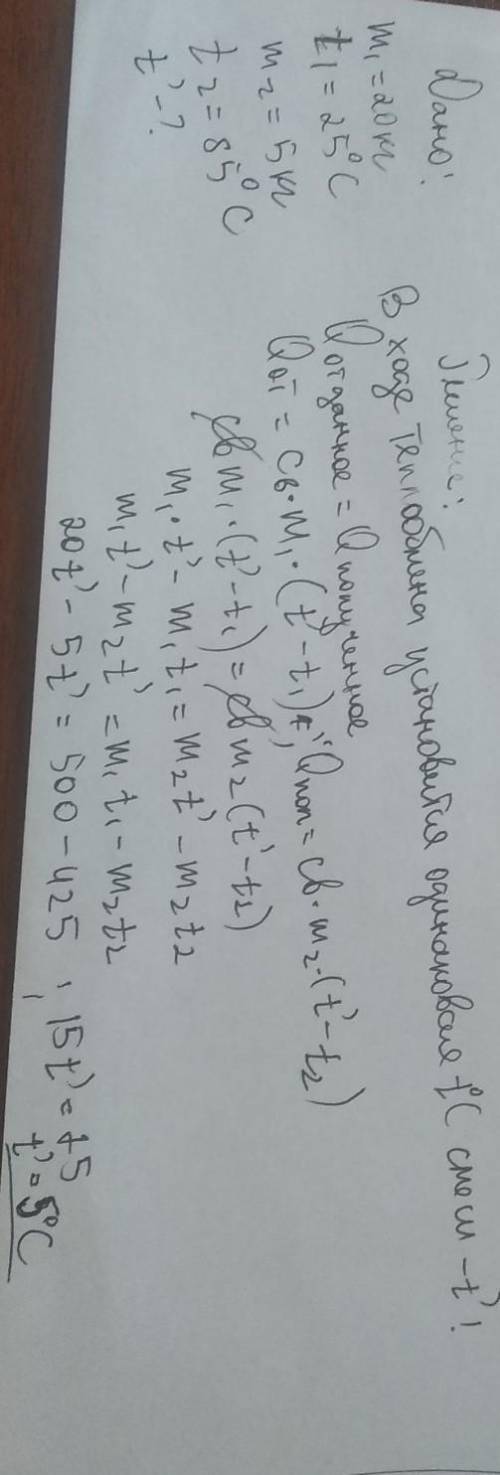 Дано:
m₁ = 20 кг
t₁ = 25°C
m₂ = 5 кг
t₂ = 85°C
t' - ?
Решение:
В ходе теплообмена установится одинаковая t°C смеси - t'!
Qотданное = Qполученное
Qот = cв·m₁·(t' - t₁); Qпол = cв·m₂·(t' - t₂)
cв m₁·(t' - t₁) = cв m₂(t' - t₂)
m₁·t' - m₁t₁ = m₂t' - m₂t₂
m₁t' - m₂t' = m₁t₁ - m₂t₂
20t' - 5t' = 500 - 425; 15t' = 75
t' = 5°C